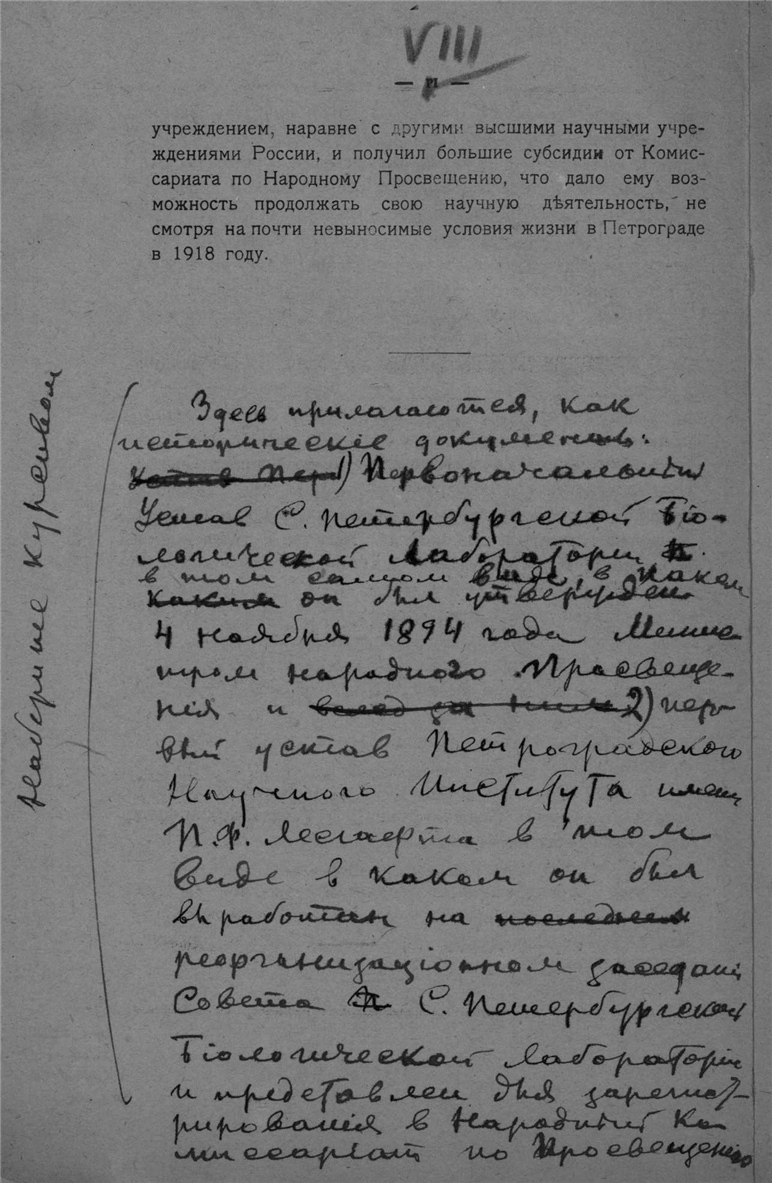 VIII
— VI —
учреждением, наравне с другими высшими научными учре-
ждениями России, и получил большие субсидии от Комис-
сариата по Народному Просвещению, что дало ему воз-
можность продолжать свою научную дѣятельность, не
смотря на почти невыносимые условия жизни в Петрограде
в 1918 году.
Наберите курсивом
Здесь прилагаются, как
исторические документы:
Устав Пер 1) Первоначальный
Устав С. Петербургской Біо-
логической Лаборатории
в том самом виде, в каком
каким он был утвержден
4 ноября 1894 года Минис
тром народного Просвеще-
нія и вслед за ним 2) пер-
вый устав Петроградского
Научного Института имени
П. Ф. Лесгафта в том
виде в каком он был
выработан на последнем
реорганизаціонном заседаніи
Совета С. Петербургской
Біологической Лабораторіи
и представлен для зарегист-
рированія в Народный Ко-
миссаріат по Просвещенію